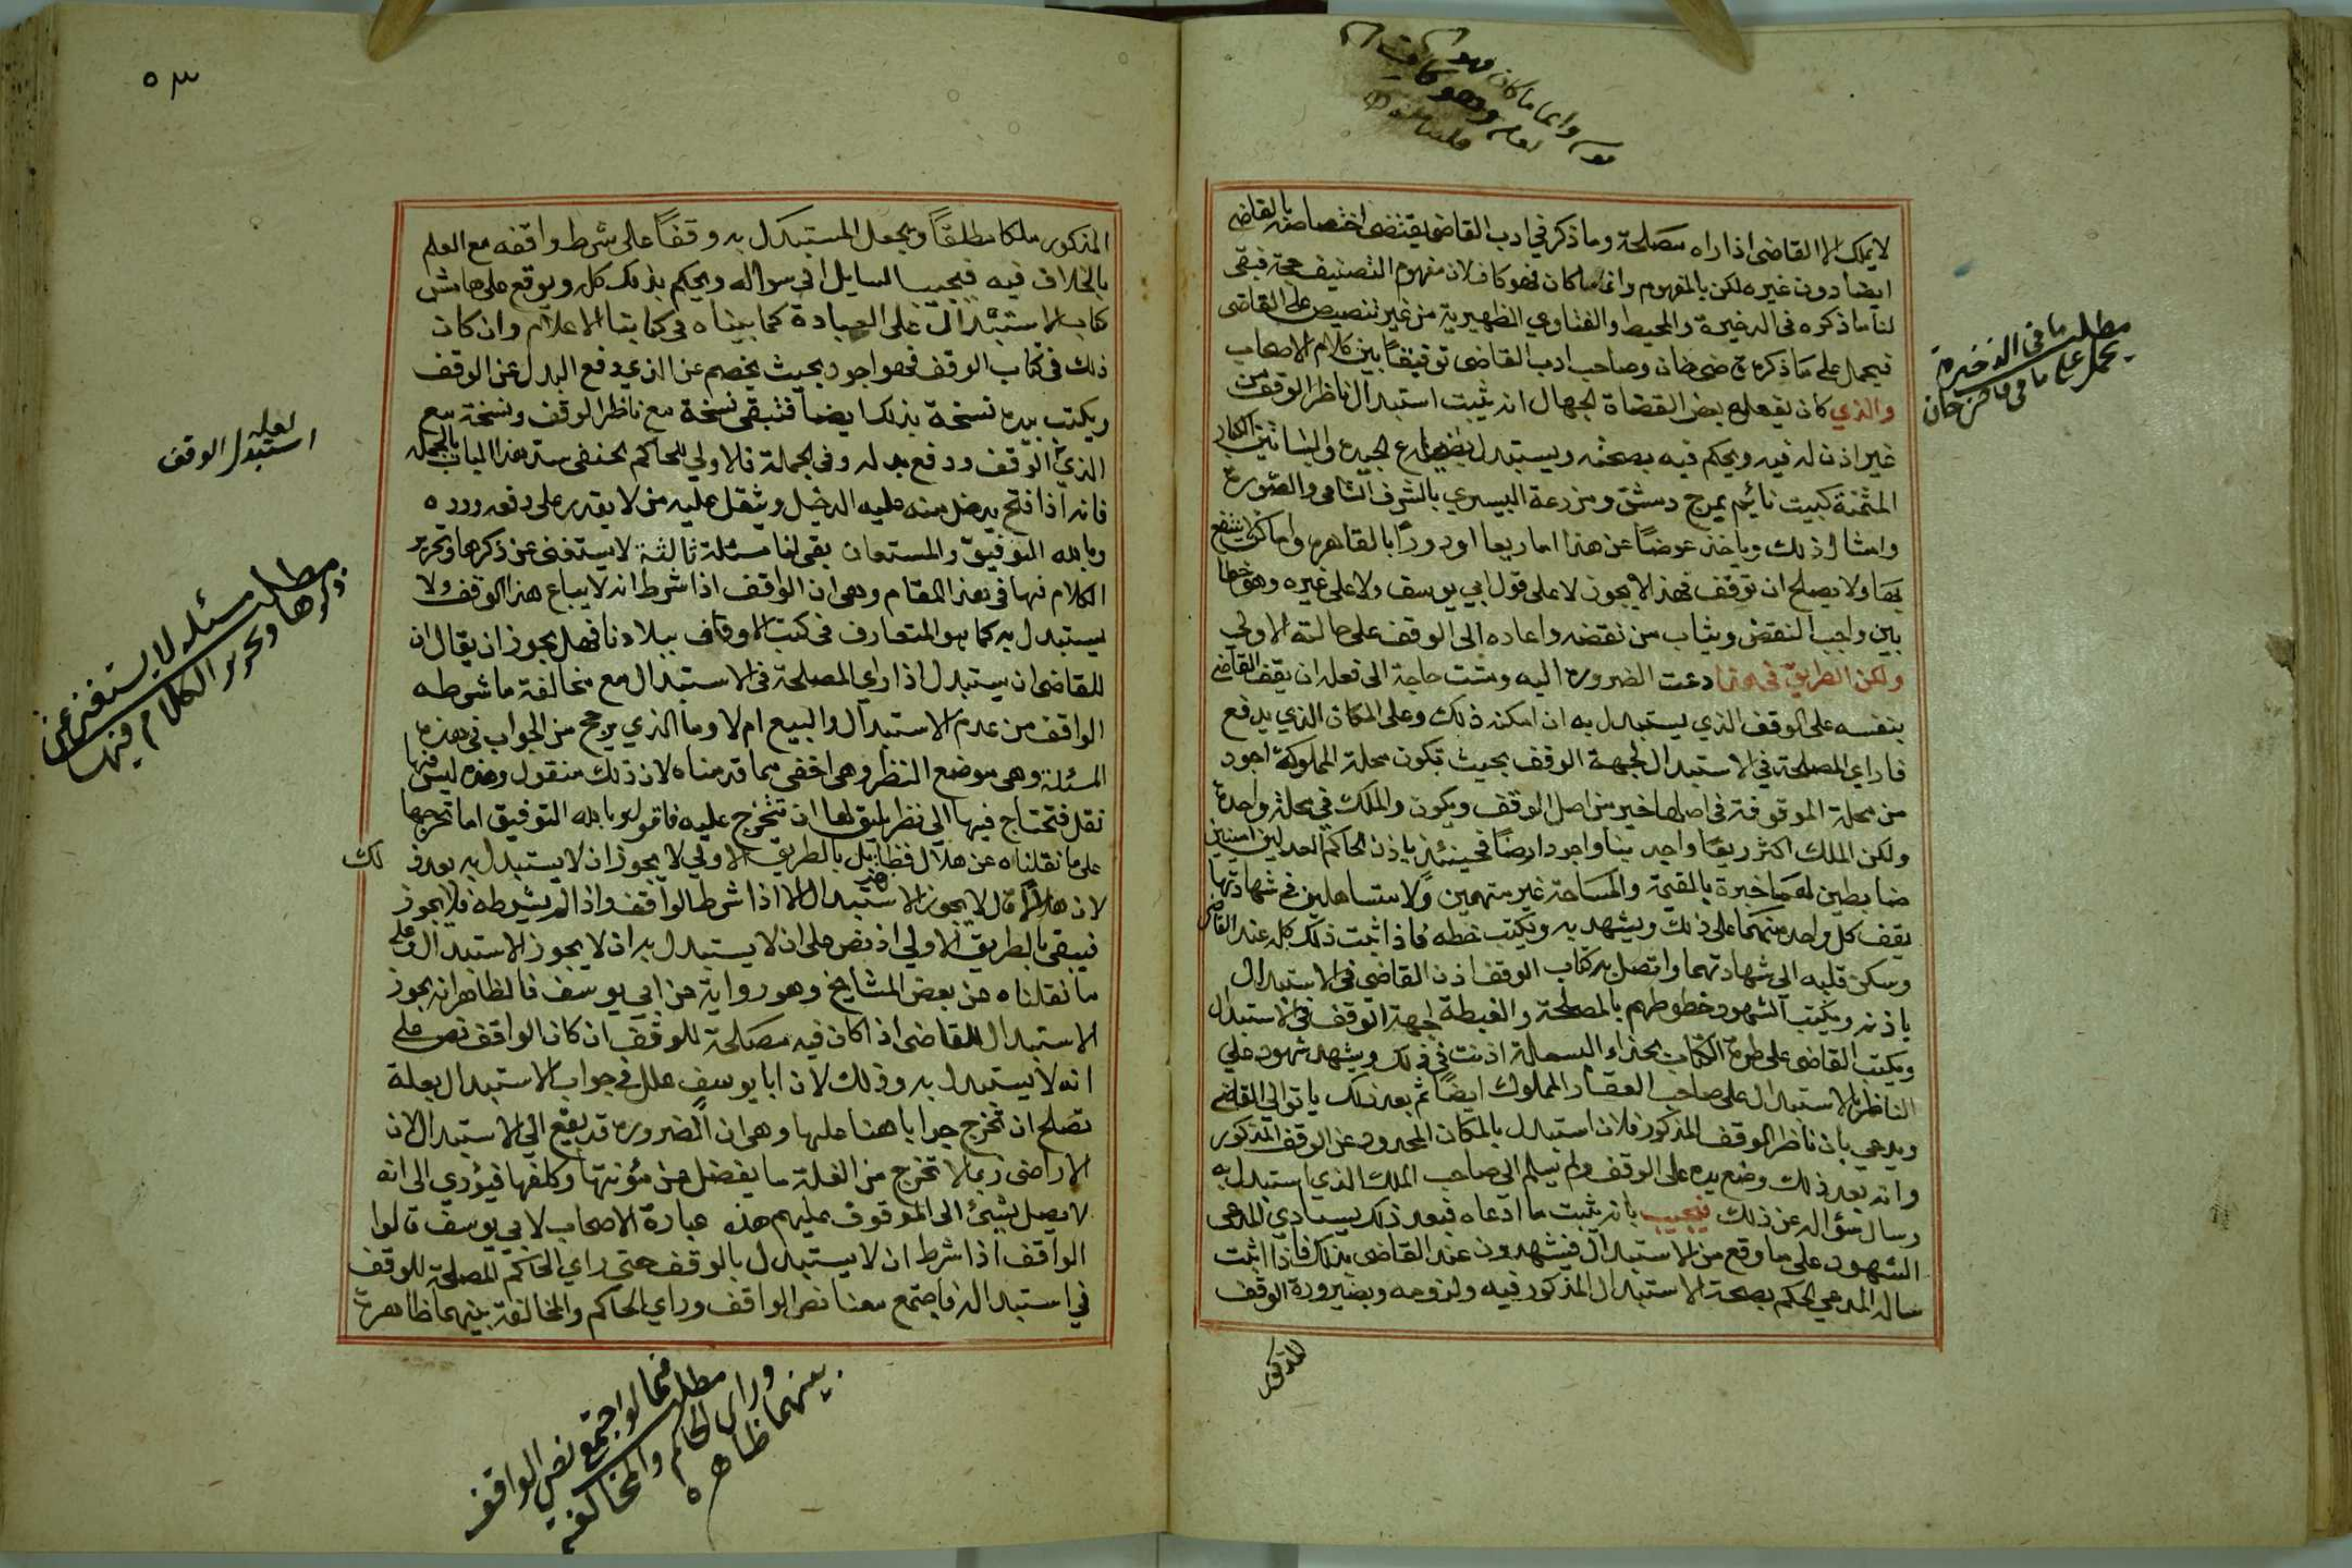 لا يملك الا القاضى اذا راه مصلحة وما ذكر في ادب القاضي يقتضى اختصاصه بالقاضى
ايضا دون غيره لكن بالمفهوم وانما ما كان فهو كاف لان مفهوم التصنيف حجة فبقى
لنا ما ذكره فى الذخيرة والمحيط والفتاوي الظهيرية من غير تنصيص على القاضى
فيحمل على ما ذكره قاضى خان وصاحب ادب القاضى توفيقاً بين كلام الاصحاب
والذي كان يفعله بعض القضاة الجهال انه يثبت استبدال الناظر الوقف من
غير اذن له فيه ويحكم فيه بصحته ويستبدل المزارع الجيدة والبساتين الكبار
المثمنة كبيت نائيم بمرج دمشق ومزرعة البيسري بالشرف الشامى والصنوبرة
وامثال ذلك وياخذ عوضاً عن هذا اما ربعا او دوراً بالقاهرة واماكن لا ينتفع
بها ولا يصلح ان توقف فهذا لا يجوز لا على قول ابي يوسف ولا على غيره وهو خطا
بين واجب النقض ويثاب من نقضه واعاده الى الوقف على حالته الاولى
ولكن الطريق في متى ما دعت الضرورة اليه ومست حاجة الى فعله ان يقف القاضي
بنفسه على الوقف الذي يستبدل به ان امكنه ذلك وعلى المكان الذي يدفع
فاذا راي المصلحة في الاستبدال لجهة الوقف بحيث تكون محلة المملوكة اجود
من محلة الموقوفة فى اصلها خير من اصل الوقف ويكون والملك في محلة واحدة
ولكن الملك اكثر ريعاً واجد بناء واجود ارضاً فحينئذ ياذن الحاكم لعدلين امينين
ضابطين لهما خبرة بالقيمة والمساحة غير متهمين ولا متساهلين فى شهادتهما
يقف كل واحد منهما على ذلك ويشهد به ويكتب خطه فاذا ثبت ذلك كله عند القاضى
وسكن قلبه الى شهادتهما واتصل به كتاب الوقف اذن القاضى فى الاستبدال
باذنه ويكتب الشهود خطوطهم بالمصلحة والغبطة لجهة الوقف فى الاستبدال
ويكتب القاضى على طرة الكتاب بحذاء البسملة اذنت في ذلك ويشهد شهود على
الناظر بالاستبدال على صاحب العقار المملوك ايضاً ثم بعد ذلك ياتوا الى القاضى
ويدعي بان ناظر الوقف المذكور فلان استبدل بالمكان المحدود عن الوقف المذكور
وانه بعد ذلك وضع يده على الوقف ولم يسلم الى صاحب الملك الذي استبدل به
وسال سؤاله عن ذلك فيجيب بانه يثبت ما ادعاه فبعد ذلك يستادي المدعى
الشهود على ما وقع من الاستبدال فيشهدون عند القاضى بذلك فاذا اثبت
ساله المدعي الحكم بصحة الاستبدال المذكور فيه ولزومه وبصيرورة الوقف
المذكور
مطلب ما فى الذخيرة
يحمل على ما فى قاضى خان
وانما ما كان فهو
لعله وهو كاف
٥٣
المذكور ملكا مطلقاً ويجعل المستبدل به وقفاً على شرط واقفه مع العلم
بالخلاف فيه فيجيب السايل الى سواله ويحكم بذلك كله ويوقع على هامش
كتاب الاستبدال على العبادة كما بيناه فى كتابنا الاعلام وان كان
ذلك فى كتاب الوقف فهو اجود بحيث يخصم عن الذي دفع البدل عن الوقف
ويكتب بيده نسخة بذلك ايضاً فتبقى نسخة مع ناظر الوقف ونسخة مع
الذي الوقف ودفع بدله وفى الجملة فلا ولي للحاكم الحنفى سد هذا الباب بالجملة
فانه اذا فتح يدخل منه عليه الدخيل ويثقل عليه من لا يقدر على دفعه ورده
وبالله التوفيق والمستعان بقى لنا مسئلة ثالثة لا يستغنى عن ذكرها وتحرير
الكلام فيها فى هذا المقام وهى ان الواقف اذا شرط انه لا يباع هذا الوقف ولا
يستبدل به كما هو المتعارف فى كتب الاوقاف ببلادنا فهل يجوز ان يقال ان
للقاضى ان يستبدل اذا راي المصلحة فى الاستبدال مع مخالفة ما شرطه
الواقف من عدم الاستبدال والبيع ام لا وما الذي يرجح من الجواب فى هذه
المسئلة وهى موضع النظر وهى اخفى مما قدمناه لان ذلك منقول وهذه ليس فيها
نقل فتحتاج فيها الى نظر يليق لها ان تتخرج عليه فاقول وبالله التوفيق اما تخرجها
على ما نقلناه عن هلال فظاهر بل بالطريق الاولى لا يجوز ان لا يستبدل به بعد ذلك
لان هلالاً قال لا يجوز الاستبدال الا اذا شرط الواقف واذا لم يشرطه فلا يجوز
فيبقى بالطريق الاولى اذ نص على ان لا يستبدل به ان لا يجوز الاستبدال وعلى
ما نقلناه عن بعض المشايخ وهو رواية عن ابي يوسف فالظاهر انه يجوز
الاستبدال للقاضى اذا كان فيه مصلحة للوقف ان كان الواقف نص على
انه لا يستبدل به وذلك لان ابا يوسف علل فى جواب الاستبدال بعلة
تصلح ان تخرج جوابا هنا عليها وهى ان الضرورة قد يقع الى الاستبدال لان
الاراضى ربما لا تخرج من الغلة ما يفضل عن مؤنتها وكلفها فيؤدي الى انه
لا يصل شيئ الى الموقوف عليهم هذه عبارة الاصحاب لابي يوسف قالوا
الواقف اذا شرط ان لا يستبدل بالوقف حتى راي الحاكم المصلحة للوقف
في استبداله فاجتمع معنا نص الواقف وراي الحاكم والمخالفة بينهما ظاهرة
لعله
استبدل الوقف
مطلب مسئله لا يستغنى عن
ذكرها وتحرير الكلام فيها
مطلب فيما لو اجتمع نص الواقف
وراى الحاكم والمخالفة
بينهما ظاهره